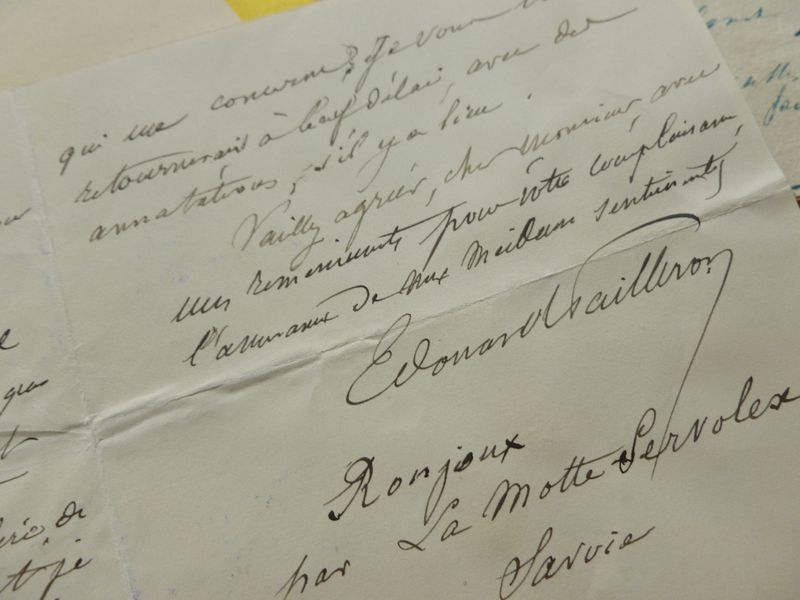 qui me concerne ; je vous le
retournerai à bref délai, avec des
annotations, s'il y a lieu.
Veuillez agréer, cher Monsieur, avec
mes remerciements pour votre complaisance,
l'assurance de mes meilleurs sentiments,
Edouard Pailleron
Ronjoux
par La Motte Servolex
Savoie
que
de
et je